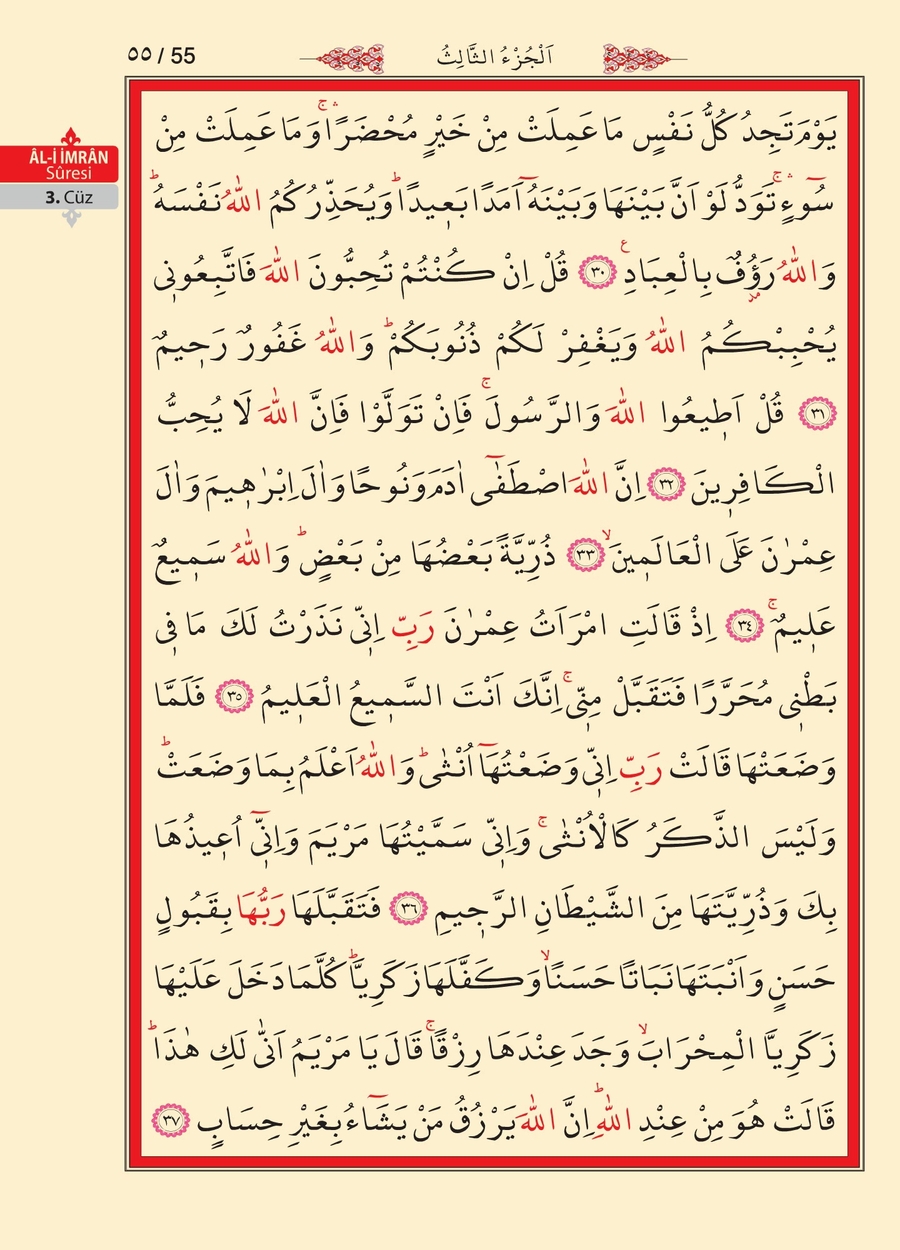 ٥٥ / 55
اَلْجُزْءُ الثَّالِثُ
ÂL-İ İMRÂN
Sûresi
3. Cüz
يَوْمَ تَجِدُ كُلُّ نَفْسٍ مَا عَمِلَتْ مِنْ خَيْرٍ مُحْضَرًاۚۛ وَمَا عَمِلَتْ مِنْ
سُٓوءٍۚۛ تَوَدُّ لَوْ اَنَّ بَيْنَهَا وَبَيْنَهُٓ اَمَدًا بَعٖيدًاؕ وَيُحَذِّرُكُمُ اللّٰهُ نَفْسَهُؕ
وَاللّٰهُ رَؤُ۫فٌ بِالْعِبَادِࣖ ﴿٣٠﴾ قُلْ اِنْ كُنْتُمْ تُحِبُّونَ اللّٰهَ فَاتَّبِعُونٖي
يُحْبِبْكُمُ اللّٰهُ وَيَغْفِرْ لَكُمْ ذُنُوبَكُمْؕ وَاللّٰهُ غَفُورٌ رَحٖيمٌ
﴿٣١﴾ قُلْ اَطٖيعُوا اللّٰهَ وَالرَّسُولَۚ فَاِنْ تَوَلَّوْا فَاِنَّ اللّٰهَ لَا يُحِبُّ
الْكَافِرٖينَ ﴿٣٢﴾ اِنَّ اللّٰهَ اصْطَفٰٓى اٰدَمَ وَنُوحًا وَاٰلَ اِبْرٰهٖيمَ وَاٰلَ
عِمْرٰنَ عَلَى الْعَالَمٖينَۙ ﴿٣٣﴾ ذُرِّيَّةً بَعْضُهَا مِنْ بَعْضٍؕ وَاللّٰهُ سَمٖيعٌ
عَلٖيمٌۚ ﴿٣٤﴾ اِذْ قَالَتِ امْرَاَتُ عِمْرٰنَ رَبِّ اِنّٖي نَذَرْتُ لَكَ مَا فٖي
بَطْنٖي مُحَرَّرًا فَتَقَبَّلْ مِنّٖيۚ اِنَّكَ اَنْتَ السَّمٖيعُ الْعَلٖيمُ ﴿٣٥﴾ فَلَمَّا
وَضَعَتْهَا قَالَتْ رَبِّ اِنّٖي وَضَعْتُهَٓا اُنْثٰىؕ وَاللّٰهُ اَعْلَمُ بِمَا وَضَعَتْؕ
وَلَيْسَ الذَّكَرُ كَالْاُنْثٰىۚ وَاِنّٖي سَمَّيْتُهَا مَرْيَمَ وَاِنّٖٓي اُعٖيذُهَا
بِكَ وَذُرِّيَّتَهَا مِنَ الشَّيْطَانِ الرَّجٖيمِ ﴿٣٦﴾ فَتَقَبَّلَهَا رَبُّهَا بِقَبُولٍ
حَسَنٍ وَاَنْبَتَهَا نَبَاتًا حَسَنًاۙ وَكَفَّلَهَا زَكَرِيَّاؕ كُلَّمَا دَخَلَ عَلَيْهَا
زَكَرِيَّا الْمِحْرَابَۙ وَجَدَ عِنْدَهَا رِزْقًاۚ قَالَ يَا مَرْيَمُ اَنّٰى لَكِ هٰذَاؕ
قَالَتْ هُوَ مِنْ عِنْدِ اللّٰهِؕ اِنَّ اللّٰهَ يَرْزُقُ مَنْ يَشَٓاءُ بِغَيْرِ حِسَابٍ ﴿٣٧﴾